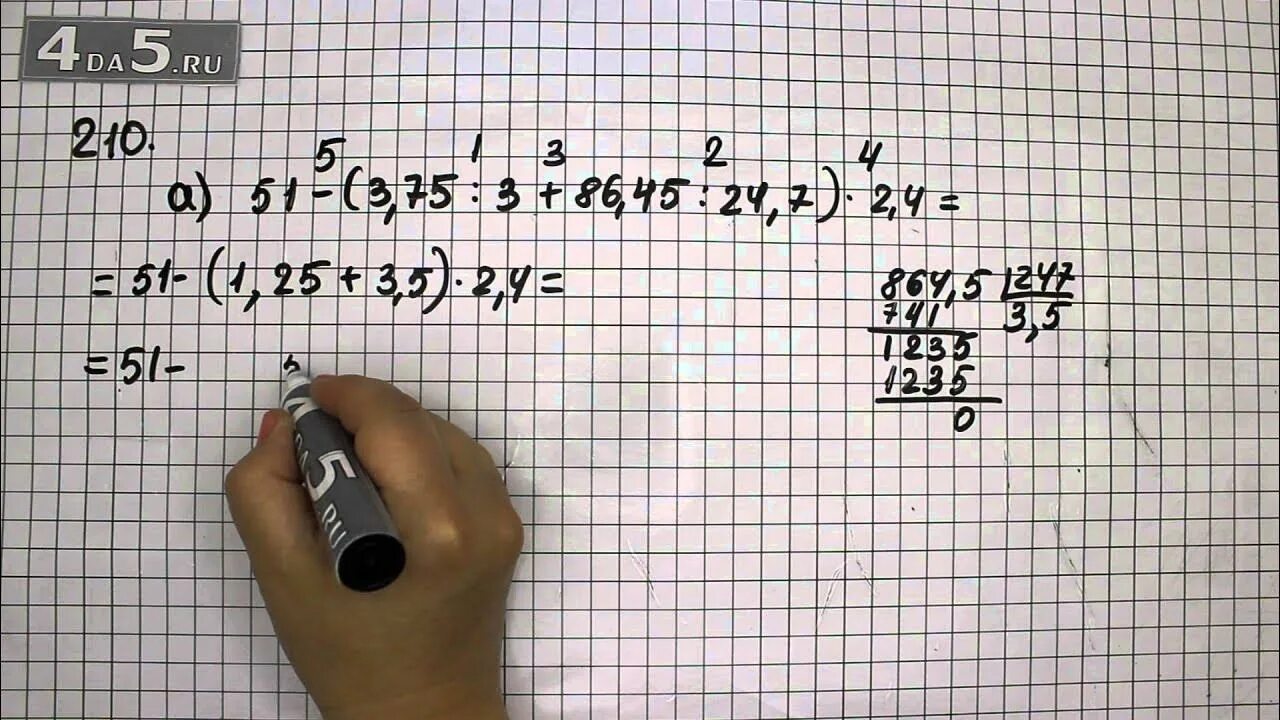 4DA5.RU
210.
5 1 3 2 4
а) 51-(3,75:3+86,45:24,7)·2,4=
=51-(1,25+3,5)·2,4=
=51-
864,5 247
741 3,5
1235
1235
0
5
RU